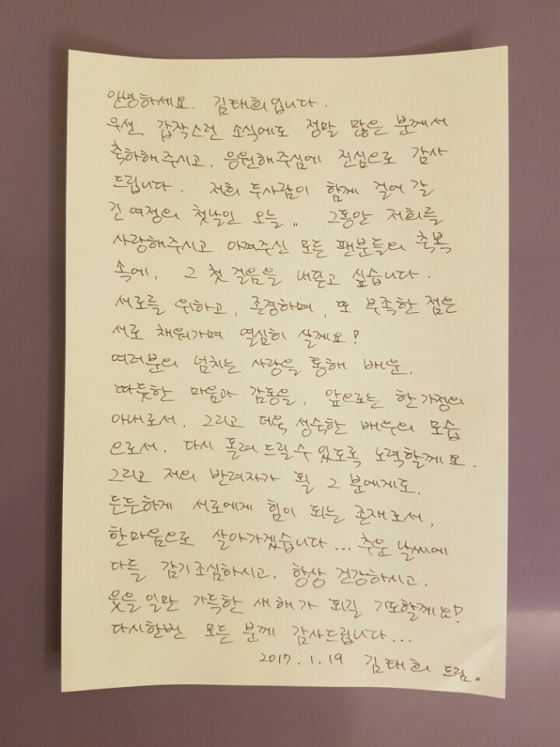 안녕하세요. 김태희입니다.
우선, 갑작스런 소식에도 정말 많은 분께서
축하해주시고, 응원해주심에 진심으로 감사
드립니다. 저희 두사람이 함께 걸어 갈
긴 여정의 첫날인 오늘,, 그동안 저희를
사랑해주시고 아껴주신 모든 팬분들의 축복
속에, 그 첫 걸음을 내딛고 싶습니다.
서로를 위하고, 존경하며, 또 부족한 점은
서로 채워가며 열심히 살께요!
여러분의 넘치는 사랑을 통해 배운,
따듯한 마음과 감동을, 앞으로는 한 가정의
아내로서, 그리고 더욱 성숙한 배우의 모습
으로서, 다시 돌려 드릴 수 있도록 노력할께요.
그리고 저의 반려자가 될 그 분에게도,
든든하게 서로에게 힘이 되는 존재로서,
한마음으로 살아가겠습니다... 추운 날씨에
다들 감기조심하시고, 항상 건강하시고,
웃을 일만 가득한 새해가 되길 기도할께요!
다시한번 모든 분께 감사드립니다...
2017. 1. 19 김태희 드림,,